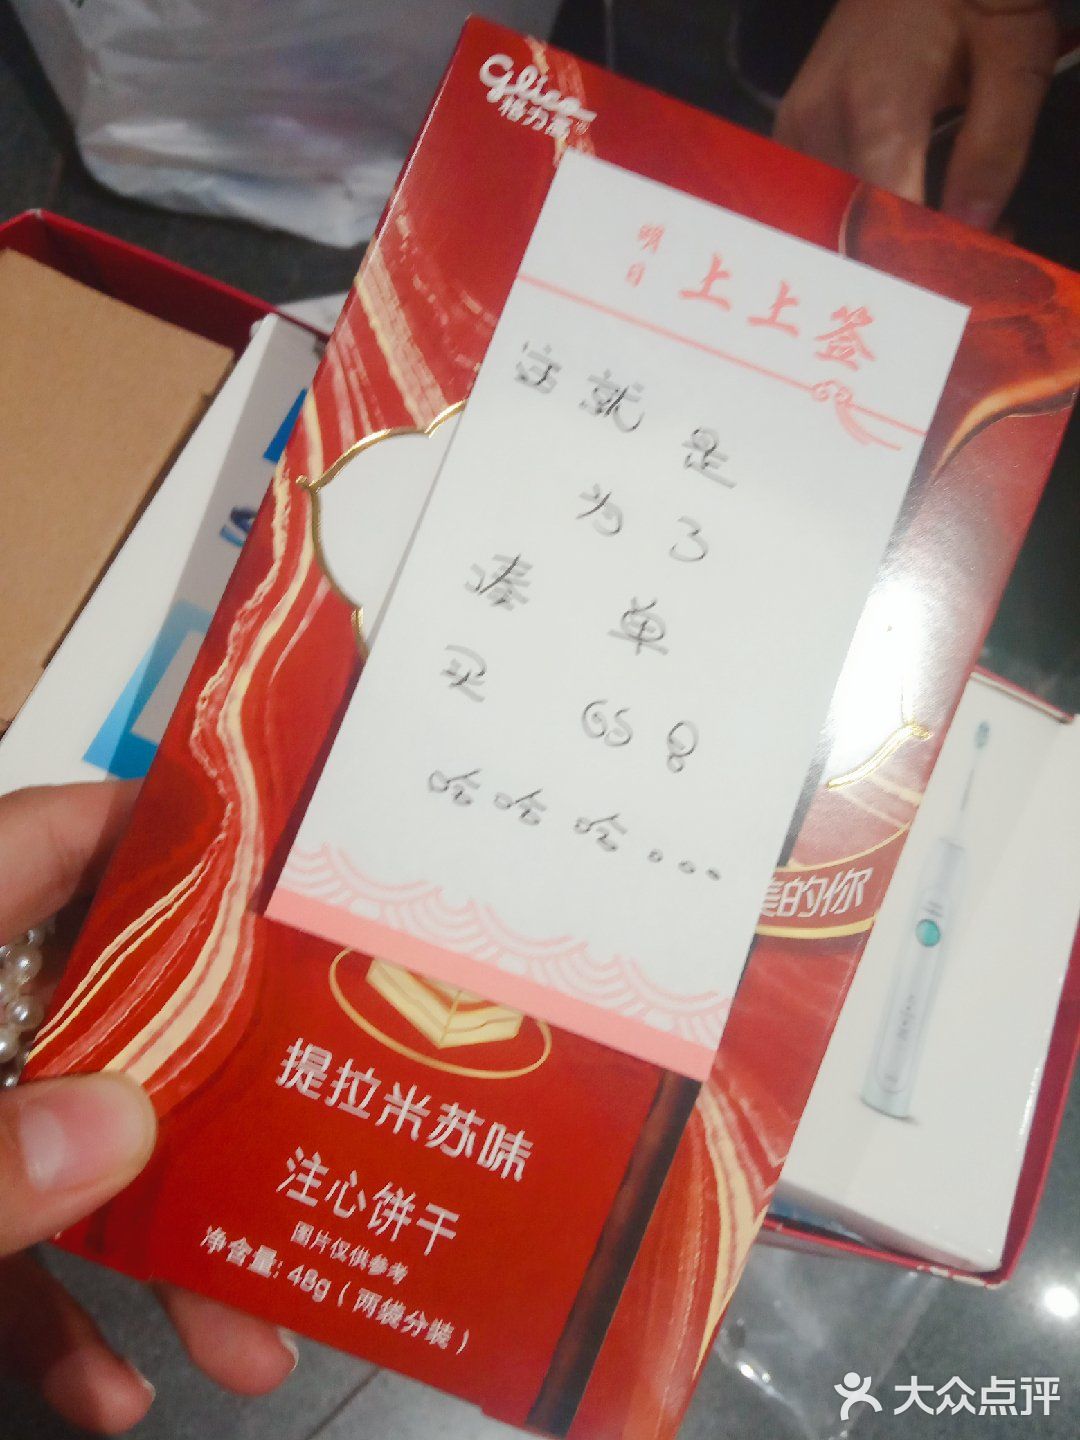 Glico
格力高
明日 上上签
这就是
为了
凑单
买的
哈哈哈...
美的你
提拉米苏味
注心饼干
图片仅供参考
净含量: 48g (两袋分装)
大众点评